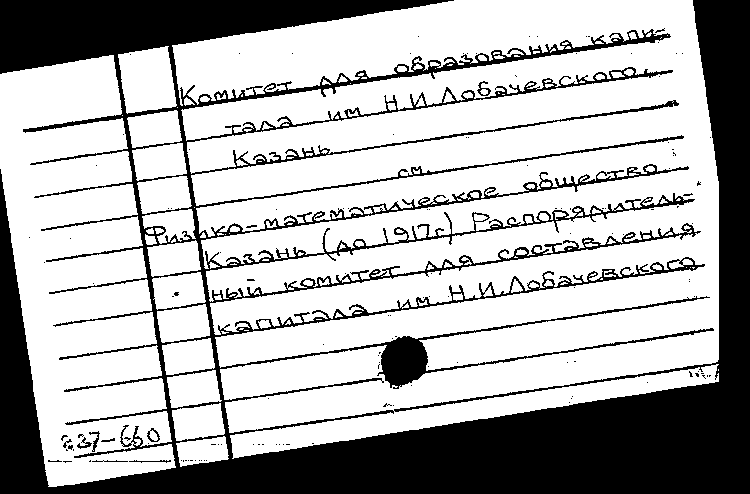 Комитет для образования капи-
тала им Н.И Лобачевского,
Казань
см.
Физико-математическое общество
Казань (до 1917г) Распорядитель-
ный комитет для составления
капитала им Н.И.Лобачевского
237-660